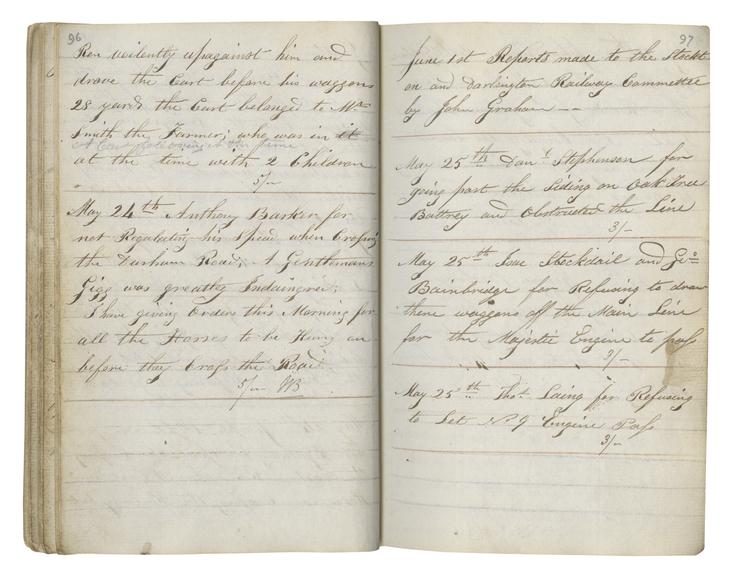 96
Ran violently upagainst him and
drove the Cart before his waggons
28 yards the Cart belonged to Mr
Smith the Farmer; who was in it
at the time with 2 Children
5/-
May 24th Anthony Barker for
not Regulating his Speed when Crossing
the Durham Road; A Gentlemans
Gigg was greatly Indaingred;
I have giving Orders this Morning for
all the Horses to be Hung on
before they Cross the Road
5/- WB
97
June 1st Reports made to the Stockt
on and Darlington Railway Committee
by John Graham --
May 25th Danl Stephenson for
going part the Siding on Oak Tree
Battrey and Obstructed the Line
3/-
May 25th Isac Stockdail and Geo
Bainbridge for Refusing to draw
there waggons off the Main Line
for the Majestic Engine to pass
3/-
May 25th Thos Laing for Refusing
to Let No 9 Engine Pass
3/-